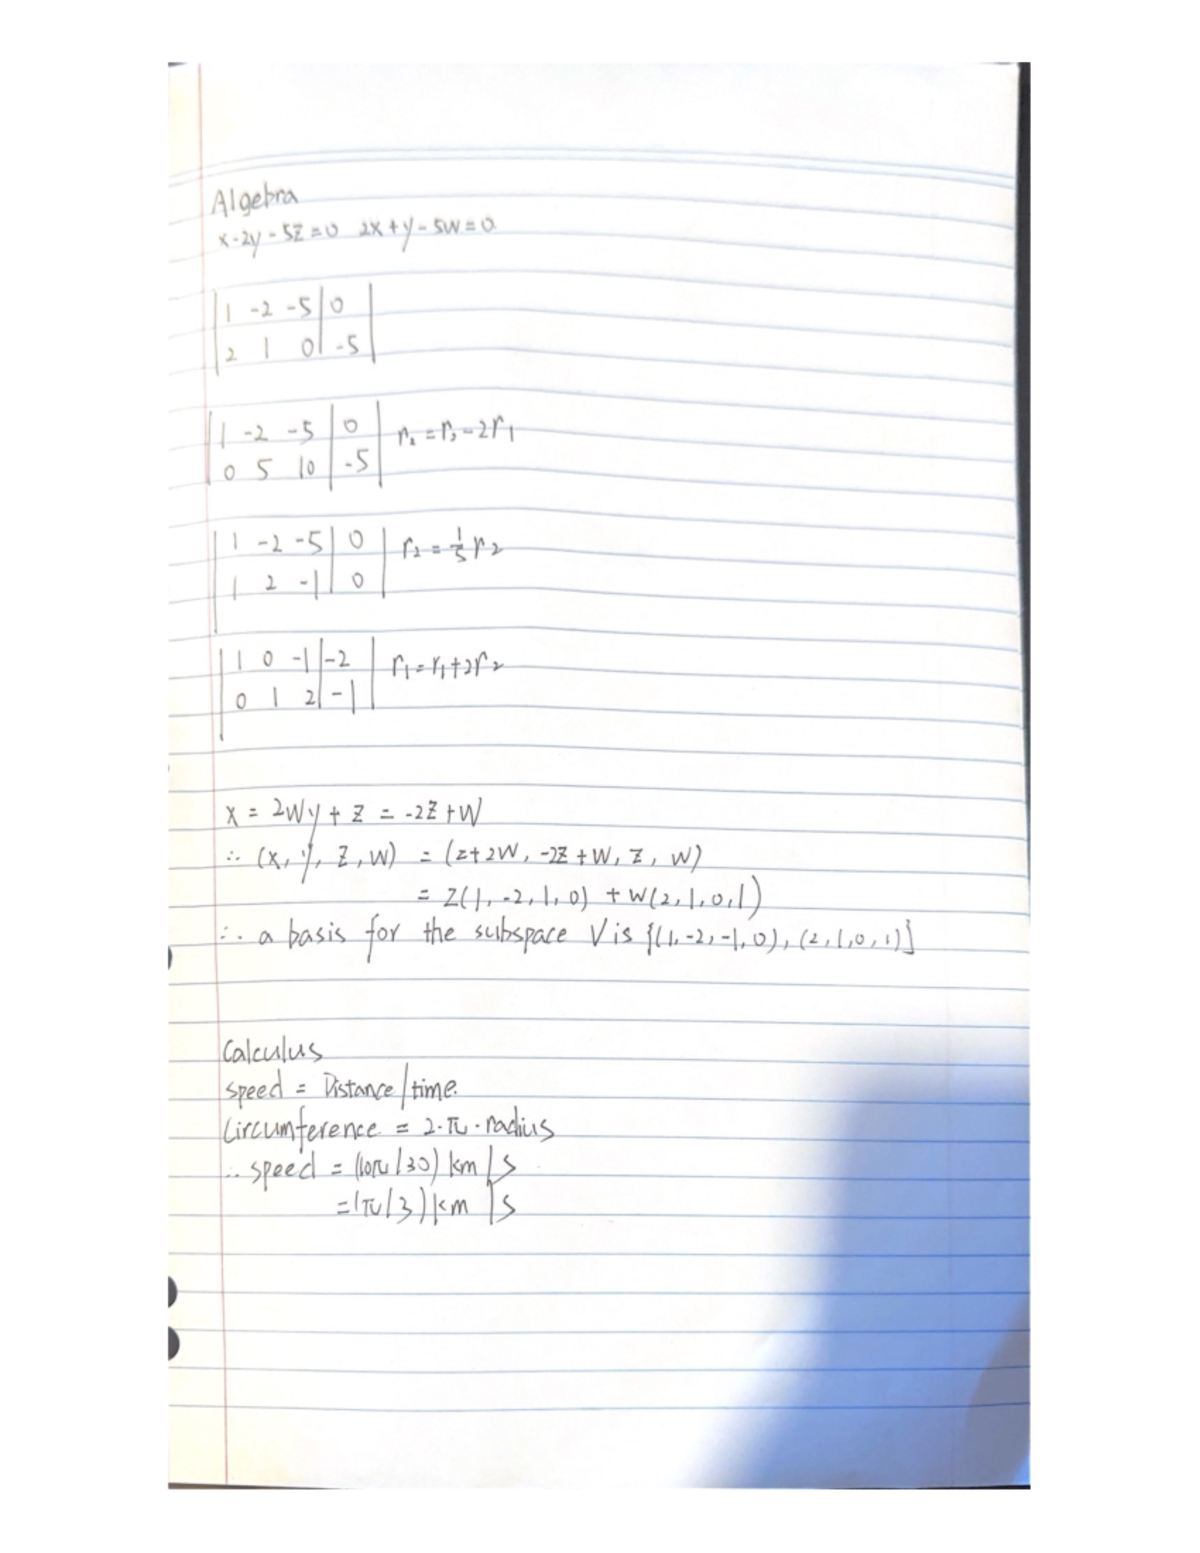 Algebra
x-2y-5z=0 2x+y-5w=0.
| 1 -2 -5 | 0 |
| 2 1 0 | -5 |
| 1 -2 -5 | 0 | r₂=r₂-2r₁
| 0 5 10 | -5 |
| 1 -2 -5 | 0 | r₂=1/5 r₂
| 1 2 -1 | 0 |
| 1 0 -1 | -2 | r₁=r₁+2r₂
| 0 1 2 | -1 |
x = 2Wy + z = -2z+W
∴ (x, y, z, w) = (z+2W, -2z+W, z, W)
= z(1, -2, 1, 0) + W(2, 1, 0, 1)
∴ a basis for the subspace V is {(1,-2,-1,0), (2,1,0,1)}
Calculus
speed = Distance/time.
Circumference = 2·π·radius
∴ speed = (10π/30) km/s
=(π/3) km/s